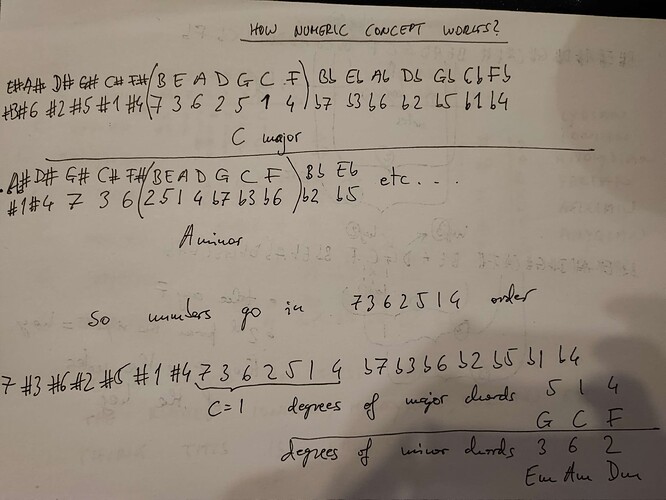 HOW NUMERIC CONCEPT WORKS?
E# A# D# G# C# F# (B E A D G C F) Bb Eb Ab Db Gb Cb Fb
#6 #2 #5 #1 #4 (7 3 6 2 5 1 4) b7 b3 b6 b2 b5 b1 b4
C major
A# D# G# C# F# (B E A D G C F) Bb Eb etc...
#1 #4 7 3 6 (2 5 1 4 b7 b3 b6) b2 b5
A minor
So numbers go in 7 3 6 2 5 1 4 order
7 #3 #6 #2 #5 #1 #4 7 3 6 2 5 1 4 b7 b3 b6 b2 b5 b1 b4
C=1 degrees of major chords 5 1 4
G C F
degrees of minor chords 3 6 2
Em Am Dm